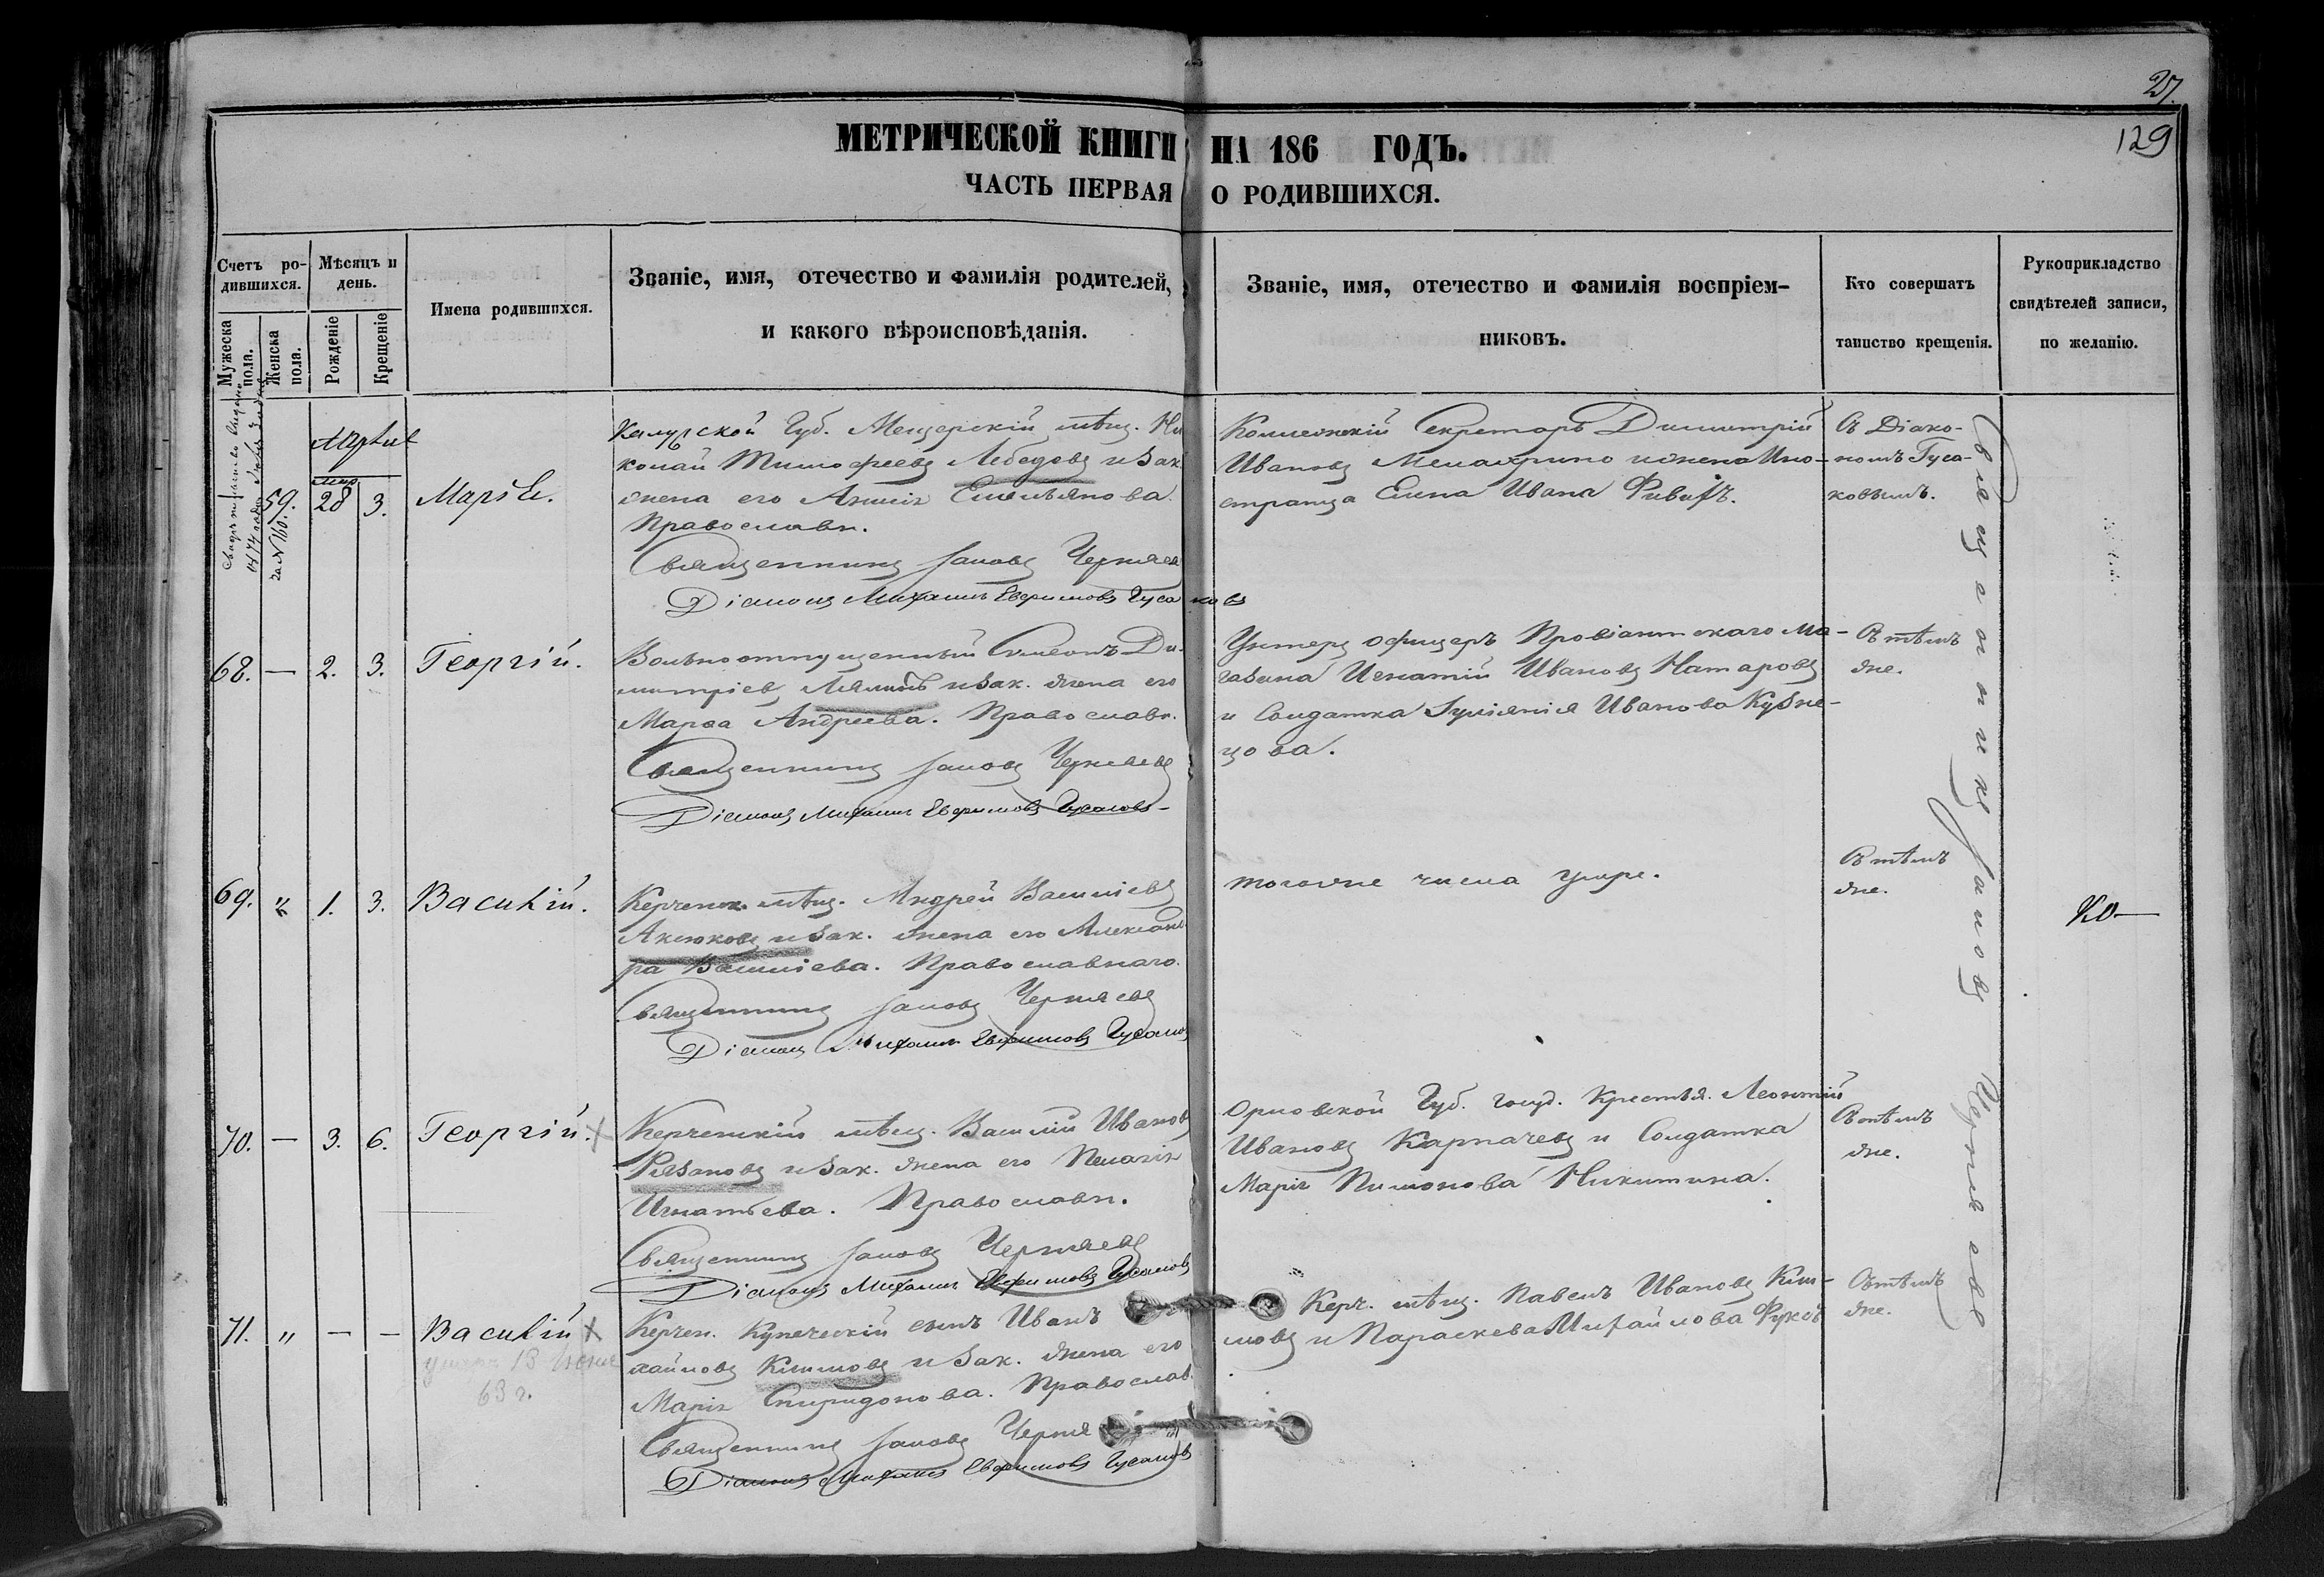 27.
129
МЕТРИЧЕСКОЙ КНИГИ НА 186 ГОДЪ.
ЧАСТЬ ПЕРВАЯ О РОДИВШИХСЯ.
Счетъ ро-
дившихся.
Мужеска пола.
Женска пола.
Мѣсяцъ и
день.
Рожденіе
Крещеніе
Имена родившихся.
Званіе, имя, отечество и фамилія родителей,
и какого вѣроисповѣданія.
Званіе, имя, отечество и фамилія воспріем-
никовъ.
Кто совершатъ
таинство крещенія.
Рукоприкладство
свидѣтелей записи,
по желанію.
за №160.
59. 28 3. Марія.
Губ. Мещерскій мѣщ. Ни
колай Тимофеевъ Лебедовъ и зак.
жена его Емельянова.
Православн.
Священникъ Іаковъ Черняевъ
Діаконъ Михаилъ Евфимовъ Гусаковъ
Коллежскій Секретарь Димитрій
Ивановъ и жена Ино-
странца Елена Ивана
Съ Діако-
номъ Гуса-
ковымъ.
68. — 2. 3. Георгій.
Вольноотпущенный Симеонъ Ди-
митріевъ Лялинъ и зак. жена его
Марѳа Андреева. Православн.
Священникъ Іаковъ Черняевъ
Діаконъ Михаилъ Евфимовъ Гусаковъ
Унтеръ офицеръ Провіантскаго Ма-
газина Игнатій Ивановъ Натаровъ
и Солдатка Іуліянія Иванова Кузне-
цова.
Съ тѣмъ
же.
69. " 1. 3. Василій.
Керченск. мѣщ. Андрей Василіевъ
Аксюковъ и зак. жена его Александ-
ра Василіева. Православнаго.
Священникъ Іаковъ Черняевъ
Діаконъ Михаилъ Евфимовъ Гусаковъ
тогоже числа умре.
Съ тѣмъ
же.
70. — 3. 6. Георгій. X
Керченскій мѣщ. Василій Ивановъ
Рязановъ и зак. жена его Пелагія
Игнатьева. Православн.
Священникъ Іаковъ Черняевъ
Діаконъ Михаилъ Евфимовъ Гусаковъ
Орловской Губ. госуд. Крестья. Леонтій
Ивановъ Карпачевъ и Солдатка
Марія Пимонова Никитина.
Съ тѣмъ
же.
71. " — — Василій X
умеръ 13 Іюня
63 г.
Керчен. Купеческій сынъ Иванъ
хайловъ Климовъ и зак. жена его
Марія Спиридонова. Православ.
Священникъ Іаковъ Черня
Діаконъ Михаилъ Евфимовъ Гусаковъ
Керч. мѣщ. Павелъ Ивановъ Кли-
мовъ и Параскева Михайлова
Съ тѣмъ
же.
Священникъ Іаковъ Черняевъ